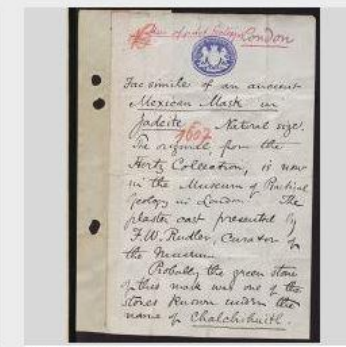 London
Facsimile of an ancient
Mexican Mask in
Jadeite. Natural size.
1607
The original from the
Hertz Collection, is now
in the Museum of Practical
Geology in London. The
plaster cast presented by
F.W. Rudler, Curator of
the Museum.
Probably the green stone
of this mask was one of the
stones known under the
name of Chalchihuitl.